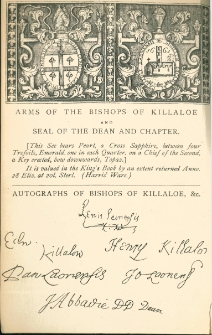 ARMS OF THE BISHOPS OF KILLALOE
AND
SEAL OF THE DEAN AND CHAPTER.
[This See bears Pearl, a Cross Sapphire, between four
Trefoils, Emerald, one in each Quarter, on a Chief of the Second,
a Key erected, bow downwards, Topaz.]
It is valued in the King's Book by an extent returned Anno.
28 Eliz. at 20l. Sterl. (Harris' Ware.)
AUTOGRAPHS OF BISHOPS OF KILLALOE, &c.
Killaloe
Henry Killaloe
J Abbadie DD Dean